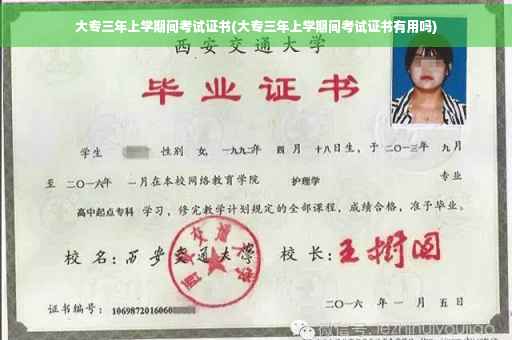 大专三年上学期间考试证书(大专三年上学期间考试证书有用吗)
西安交通大学
毕业证书
学生 性别 女, 一九九二年 四 月 十八日生, 于 二〇一三年 九月
至 二〇一六年 一月在本校网络教育学院 护理学 专业
高中起点专科 学习, 修完教学计划规定的全部课程, 成绩合格, 准予毕业。
校 名: 西安交通大学 校 长: 王树国
西安交通大学
证书编号: 1069872016060
二〇一六 年 一 月 五 日
微信号: jezhinuiyoujiao